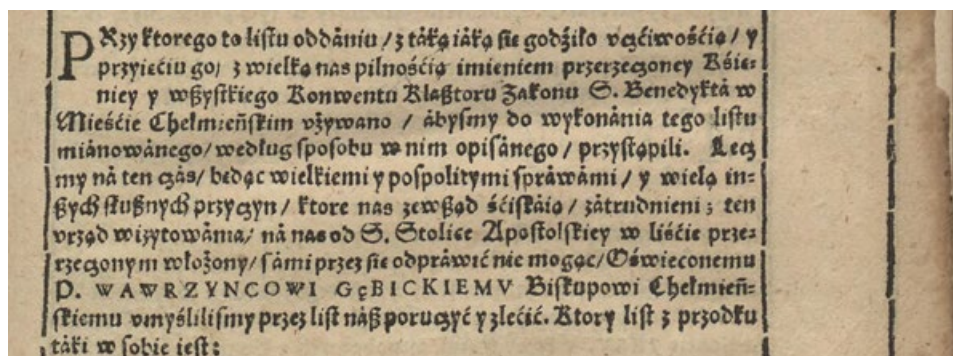 PRzy ktorego to listu oddániu / z táką iáką sie godźiło vczćiwośćią / y
przyięćiu go / z wielką nas pilnośćią imieniem przerzeczoney Kśie-
niey y wszystkiego Konwentu Klasztoru Zakonu S. Benedyktá w
Mieśćie Chełmieńskim vżywano / ábysmy do wykonánia tego listu
miánowánego / według sposobu w nim opisánego / przystąpili. Lecz
my ná ten czás / będąc wielkiemi y pospolitymi spráwámi / y wielą in-
szych słusznych przyczyn / ktore nas zewsząd śćiskáią / zátrudnieni ; ten
vrząd wizytowánia / ná nas od S. Stolice Apostolskiey w liśćie prze-
rzeczonym włożony / sámi przez sie odpráwić nie mogąc / Oświeconemu
P. WAWRZYNCOWI GęBICKIEMV Biskupowi Chełmień-
skiemu vmyślilismy przez list nász poruczyć y zlećić. Ktory list z przodku
táki w sobie iest :